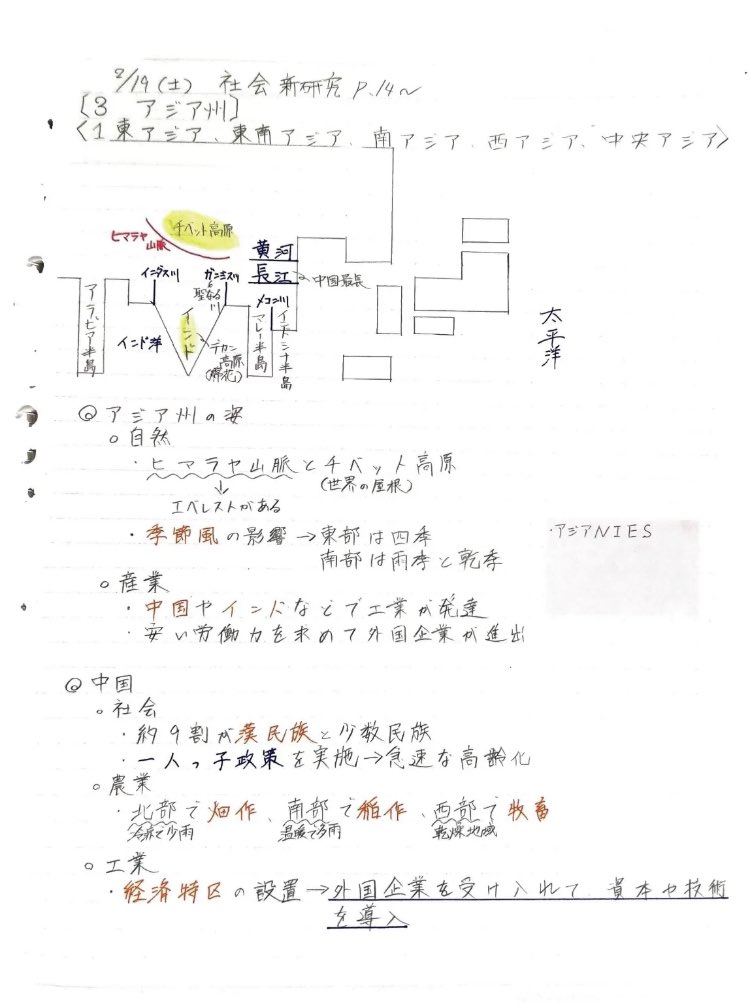 2/19(土) 社会 新研究 P.14〜
[3 アジア州]
〈1 東アジア、東南アジア、南アジア、西アジア、中央アジア〉
チベット高原
ヒマラヤ山脈
黄河
長江
中国最長
インダス川
ガンジス川
聖なる川
メコン川
アラビア半島
インド洋
インド
デカン高原
(綿花)
マレー半島
インドシナ半島
太平洋
◎アジア州の姿
○自然
・ヒマラヤ山脈とチベット高原
(世界の屋根)
↓
エベレストがある
・季節風の影響→東部は四季
南部は雨季と乾季
・アジアNIES
○産業
・中国やインドなどで工業が発達
・安い労働力を求めて外国企業が進出
◎中国
○社会
・約9割が漢民族と少数民族
・一人っ子政策を実施→急速な高齢化
○農業
・北部で畑作、南部で稲作、西部で牧畜
冷涼で少雨 温暖で多雨 乾燥地域
○工業
・経済特区の設置→外国企業を受け入れて、資本や技術
を導入